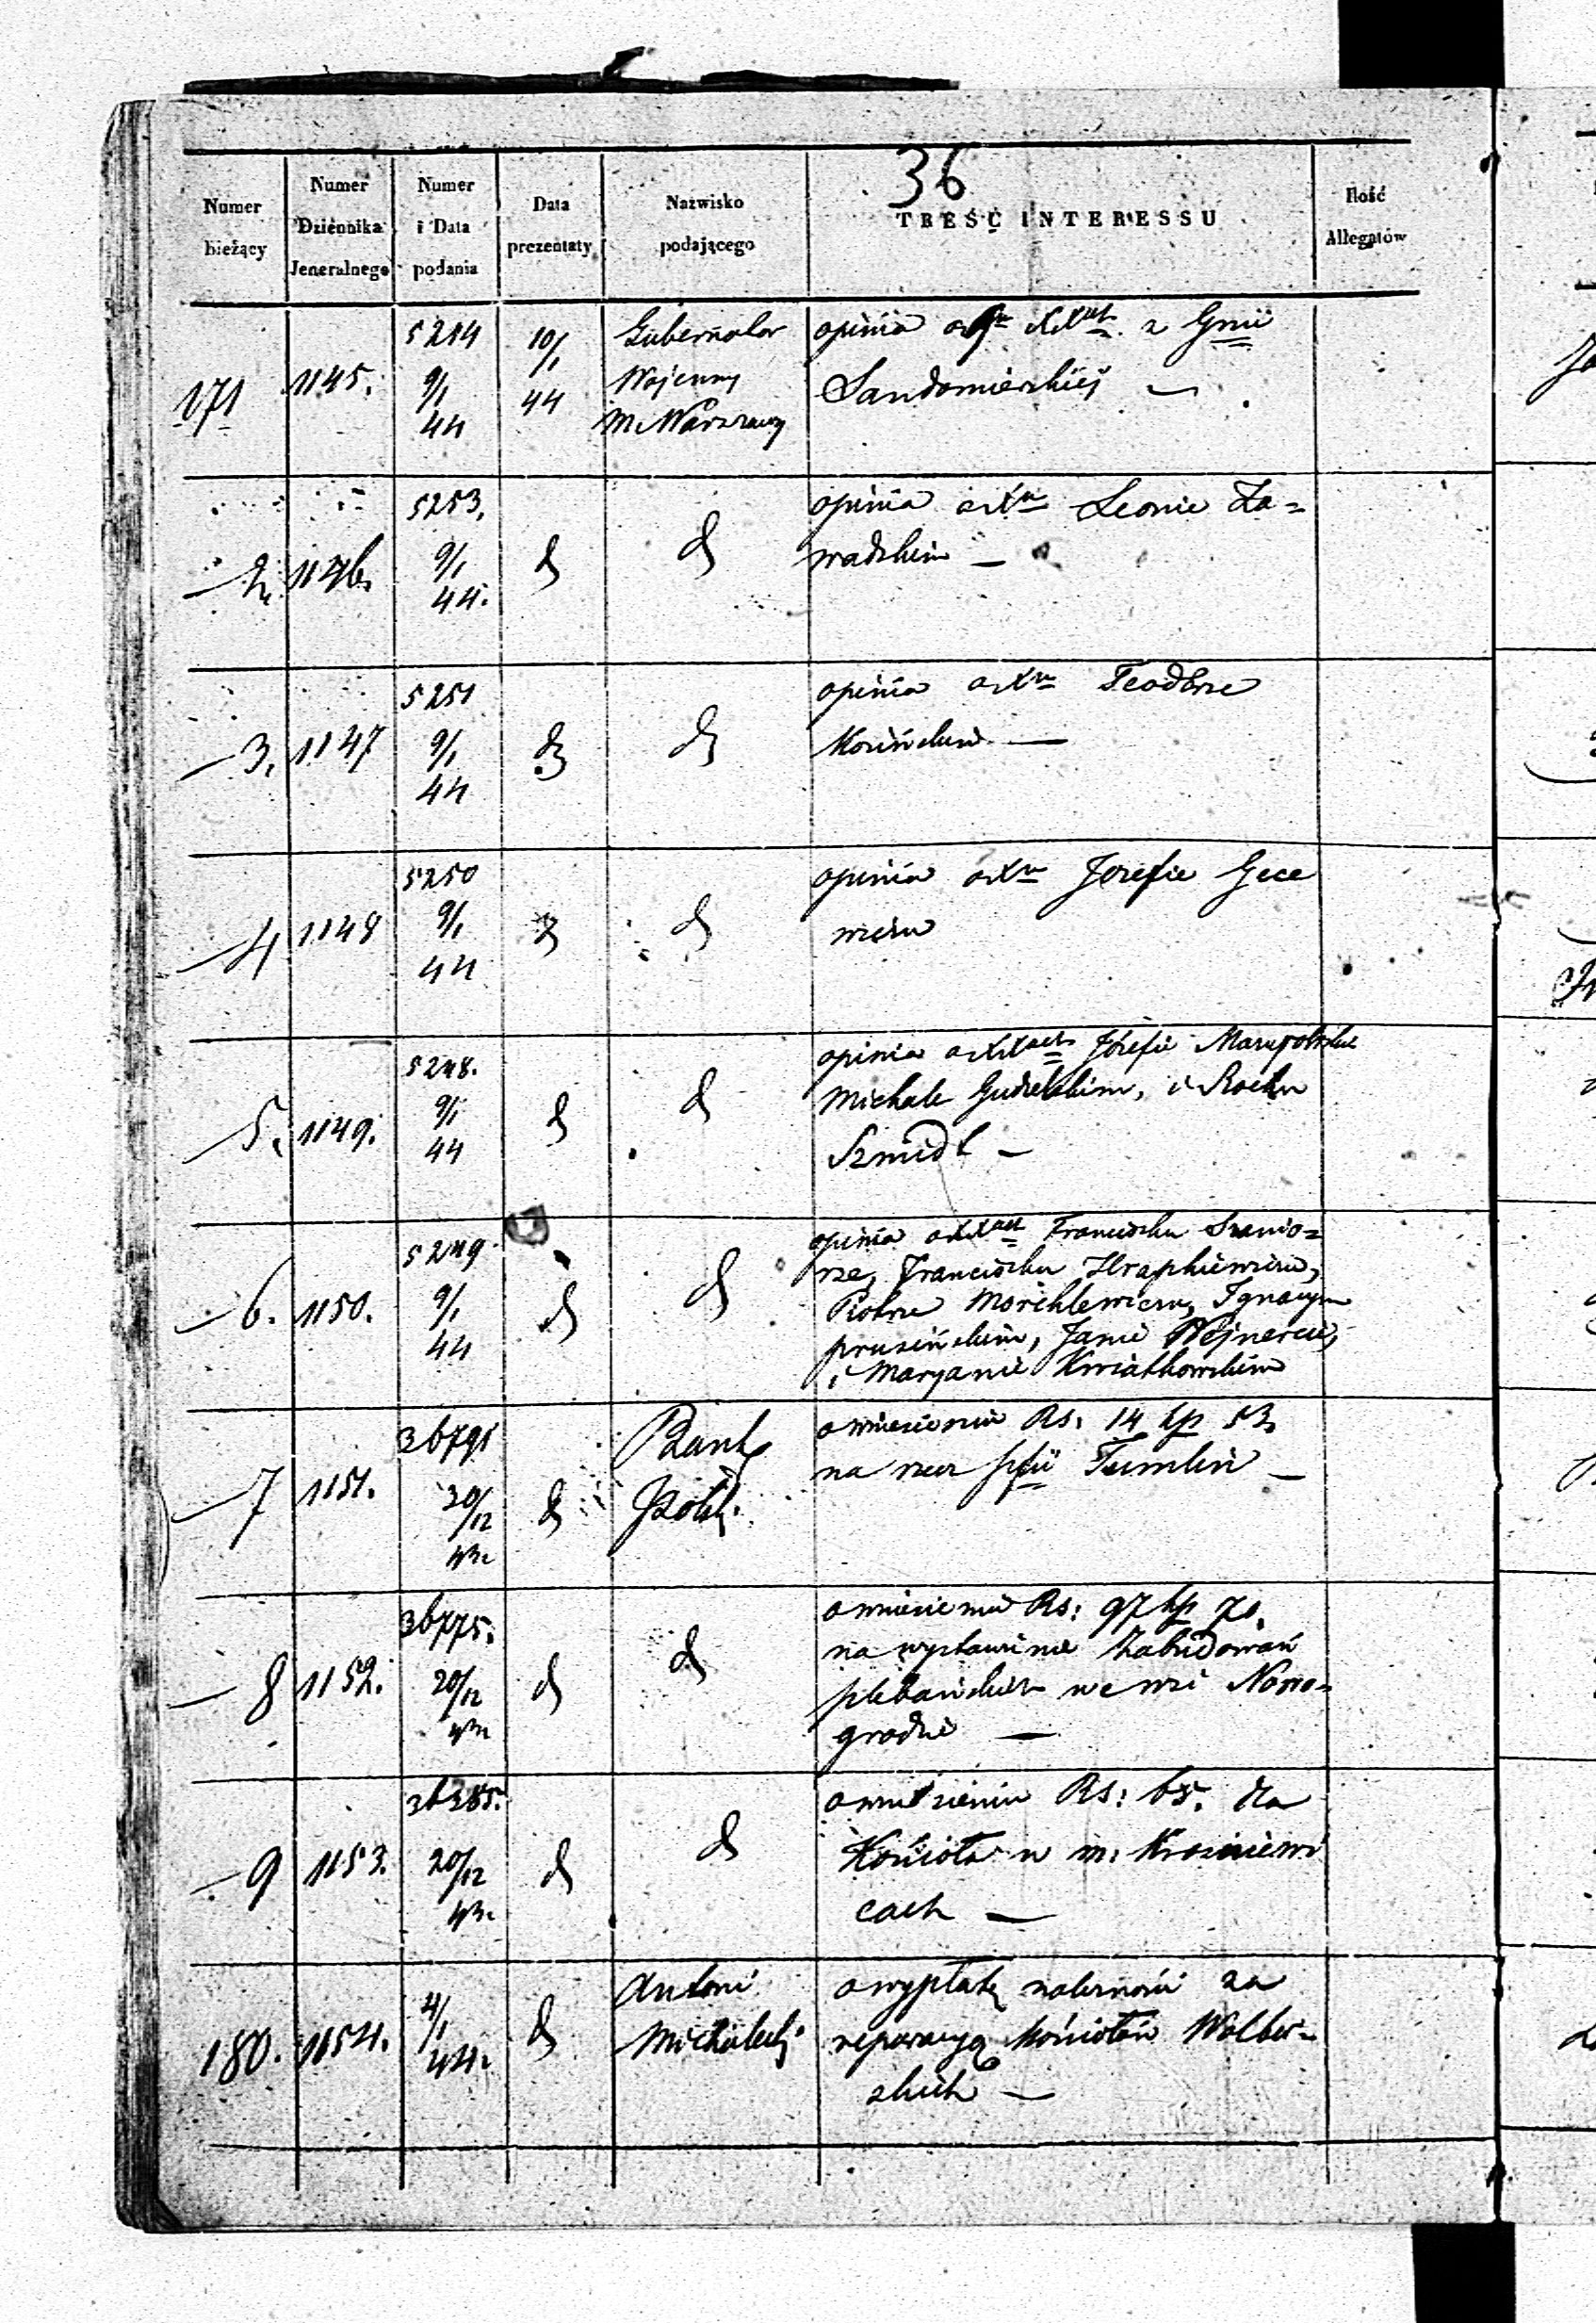 36
Numer bieżący
Numer Dziennika Jeneralnego
Numer i Data podania
Data prezentaty
Nazwisko podającego
TREŚĆ INTERESSU
Ilość Allegatów
171 1145. 5214 9/1 44 10/1 44
Gubernator
Wojenny
M. Warszawy
opinia z Gnii
Sandomierskiej —
2, 1146. 5253, 9/1 44. d d
opinia o Xu Leonie Za=
wadzkim —
3, 1147 5251 9/1 44 d d
opinia o Xu Teodorze
Kozińskim —
4 1148 5250 9/1 44 d d
opinia o Xu Jozefie Gece
wiczu
5, 1149. 5248. 9/1 44 d d
opinia o XX Józefie
Michale i Rochu
Szmidt —
6. 1150. 5249 9/1 44 d d
opinia o XX Franciszku
rze, Franciszku Hrapkiewiczu,
Piotrze Morchlewiczu, Ignacym
prusińskim, Janie Wejnercie,
i Maryanie Kwiatkowskim
7 1151. 36791 30/12 43. d
Bank
Polski.
o wniesieniu Rs: 14 kp 53,
na rzecz Tumlin —
8 1152. 36775. 20/12 43. d d
o wniesieniu Rs: 97 kp 70,
na wystawienie Zabudowań
plebańskich we wsi Nowo=
grodzie —
9 1153. 36385. 20/12 43. d d
o wniesieniu Rs: 65. dla
Kościoła w m. Krosniewi
cach —
180. 1154. 4/1 44. d
Antoni
Michalecki
o wypłatę należności za
reparacyą Kościołów Wolbor=
skich —